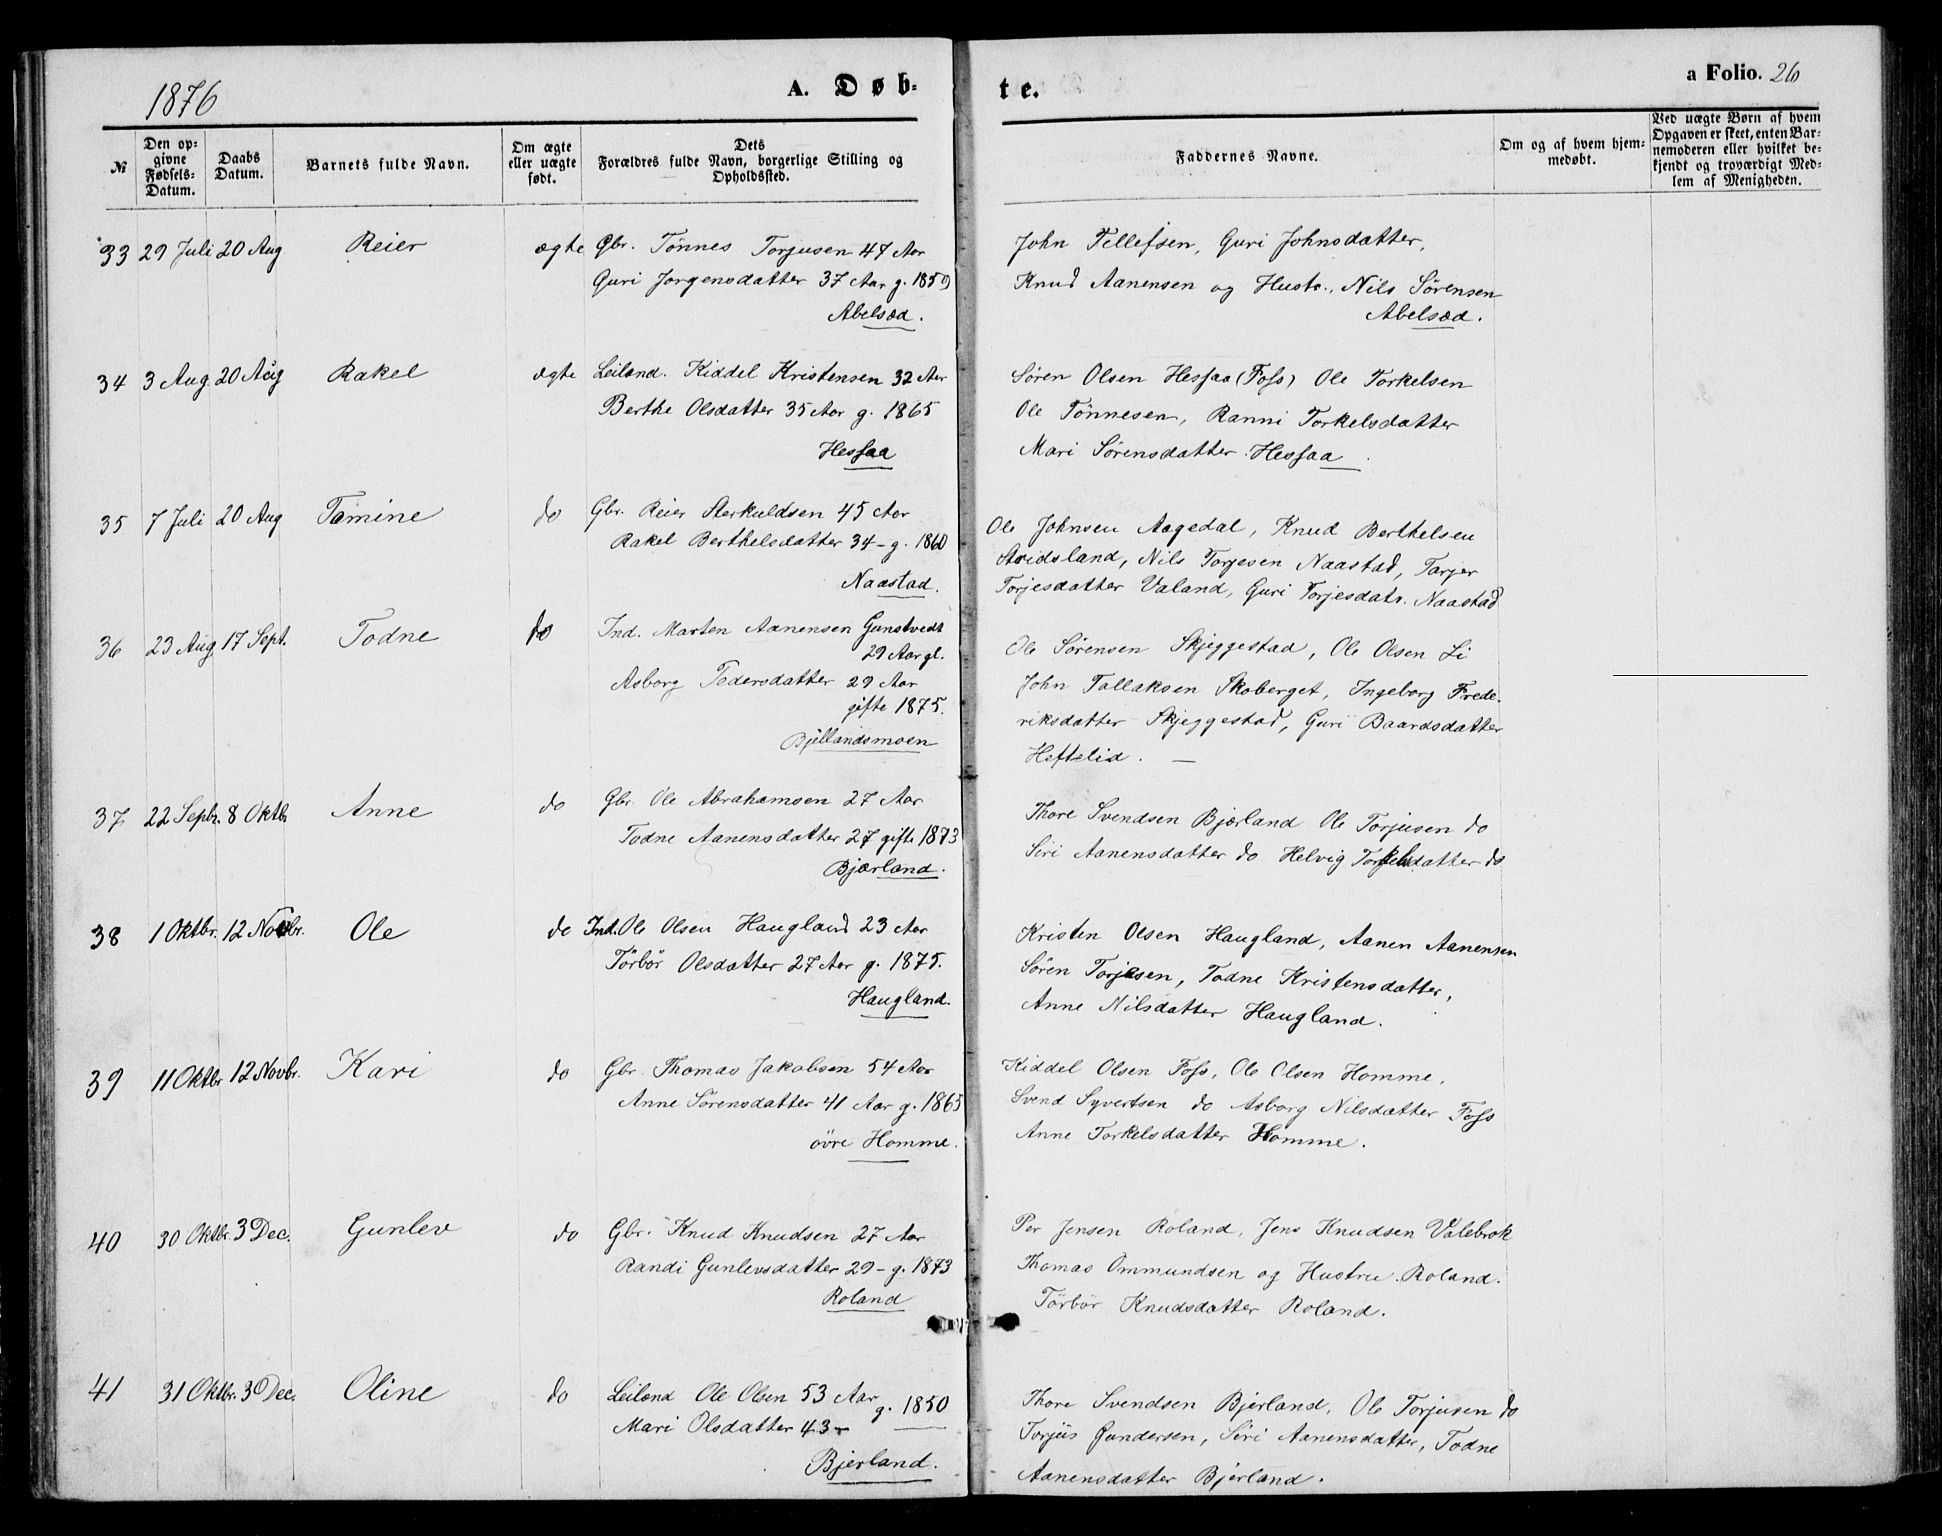 1876
A. Døb-
te.
a Folio. 26
№
Den op-
givne
Fødsels-
Datum.
Daabs
Datum.
Barnets fulde Navn.
Om ægte
eller uægte
født.
Dets
Forældres fulde Navn, borgerlige Stilling og
Opholdssted.
Faddernes Navne.
Om og af hvem hjem-
medøbt.
Ved uægte Børn af hvem
Opgaven er skeet, enten Bar-
nemoderen eller hvilket be-
kjendt og troværdigt Med-
lem af Menigheden.
33 29 Juli 20 Aug Reier ægte Gbr. Tönnes Torjusen 47 Aar
Guri Jorgensdatter 37 Aar g. 1859
Abelsæd.
John Tellefsen, Guri Johnsdatter,
Knud Aanensen og Hustr., Nils Sørensen
Abelsæd.
34 3 Aug 20 Aug Rakel ægte Leilænd. Kiddel Kristensen 32 Aar
Berthe Olsdatter 35 Aar g. 1865
Hessaa
Sören Olsen Hessaa (Foss) Ole Torkelsen
Ole Tönnesen, Ranni Torkelsdatter
Mari Sörensdatter Hessaa.
35 7 Juli 20 Aug Tamine do Gbr. Reier Sterkuldsen 45 Aar
Rakel Berthelsdatter 34 - g. 1860
Naastad.
Ole Johnsen Aagedal, Knud Berthelsen
Stridsland, Nils Torjesen Naastad, Tarjer
Torjesdatter Valand, Guri Torjesdatr. Naastad
36 23 Aug 17 Sept. Todne do Ind. Marten Aanensen Gunstvedt
29 Aar gl.
Asborg Pedersdatter 29 Aar
gifte 1875.
Bjellandsmoen
Ole Sörensen Skjeggestad, Ole Olsen Li
John Tallaksen Skoberget, Ingeborg Frede-
riksdatter Skjeggestad, Guri Baardsdatter
Heftelid. —
37 22 Sepbr. 8 Oktb Anne do Gbr. Ole Abrahamsen 27 Aar
Todne Aanensdatter 27 gifte 1873
Bjærland.
Thore Svendsen Bjærland Ole Torjusen do
Siri Aanensdatter do Helvig Torkelsdatter do
38 1 Oktbr. 12 Novbr. Ole do Ind. Ole Olsen Haugland 23 Aar
Törbör Olsdatter 27 Aar g. 1875.
Haugland.
Kristen Olsen Haugland, Aanen Aanensen
Sören Torjesen, Todne Kristensdatter,
Anne Nilsdatter Haugland.
39 11 Oktbr 12 Novbr. Kari do Gbr. Thomas Jakobsen 54 Aar
Anne Sörensdatter 41 Aar g. 1865
övre Homme.
Kiddel Olsen Foss, Ole Olsen Homme,
Svend Syvertsen do Asborg Nilsdatter Foss
Anne Torkelsdatter Homme.
40 30 Oktbr. 3 Dec. Gunlev do Gbr. Knud Knudsen 27 Aar
Randi Gunlevsdatter 29 - g. 1873
Roland
Per Jensen Roland, Jens Knudsen Valebrok
Thomas Ommundsen og Hustru Roland.
Törbör Knudsdatter Roland.
41 31 Oktbr. 3 Dec. Oline do Leilænd Ole Olsen 53 Aar g. 1850
Mari Olsdatter 43 -
Bjerland.
Thore Svendsen Bjerland, Ole Torjusen do
Torjus Gundersen, Siri Aanensdatter, Todne
Aanensdatter Bjerland.